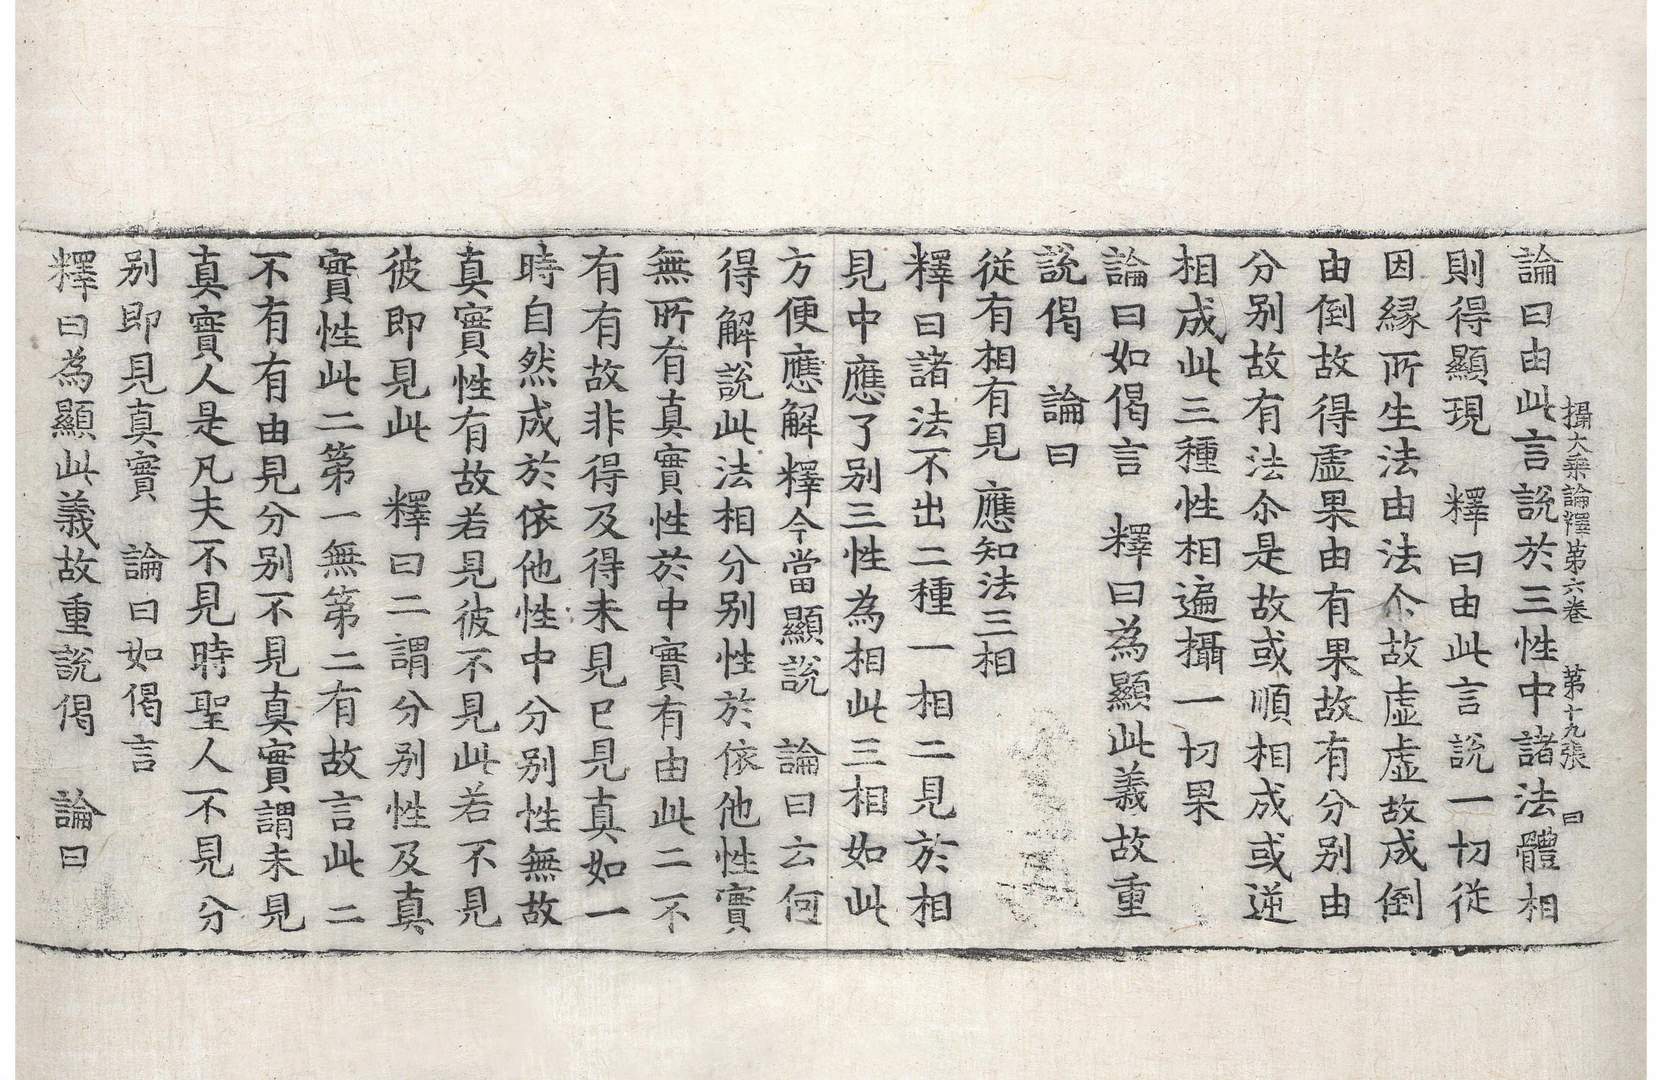 攝大乗論釋第六巻　第十九張　曰
論曰由此言說於三性中諸法體相
則得顯現　釋曰由此言說一切從
因緣所生法由法尒故虛虛故成倒
由倒故得虛果由有果故有分別由
分別故有法尒是故或順相成或逆
相成此三種性相遍攝一切果
論曰如偈言　釋曰為顯此義故重
說偈　論曰
從有相有見　應知法三相
釋曰諸法不出二種一相二見於相
見中應了別三性為相此三相如此
方便應解釋今當顯說　論曰云何
得解說此法相分別性於依他性實
無所有真實性於中實有由此二不
有有故非得及得未見已見真如一
時自然成於依他性中分別性無故
真實性有故若見彼不見此若不見
彼即見此　釋曰二謂分別性及真
實性此二第一無第二有故言此二
不有有由見分別不見真實謂未見
真實人是凡夫不見時聖人不見分
別即見真實　論曰如偈言
釋曰為顯此義故重說偈　論曰